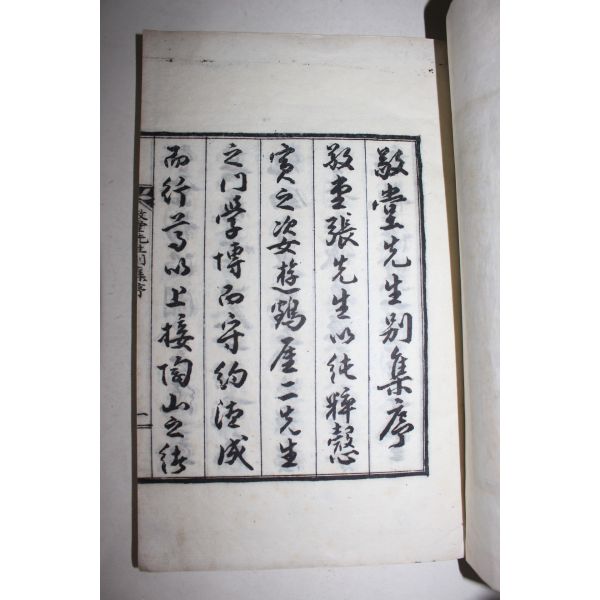 敬堂先生別集序
敬堂張先生以純粹慤
實之姿遊鶴厓二先生
之門學博而守約德成
而行尊以上接陶山之緒
敬堂先生別集序
一